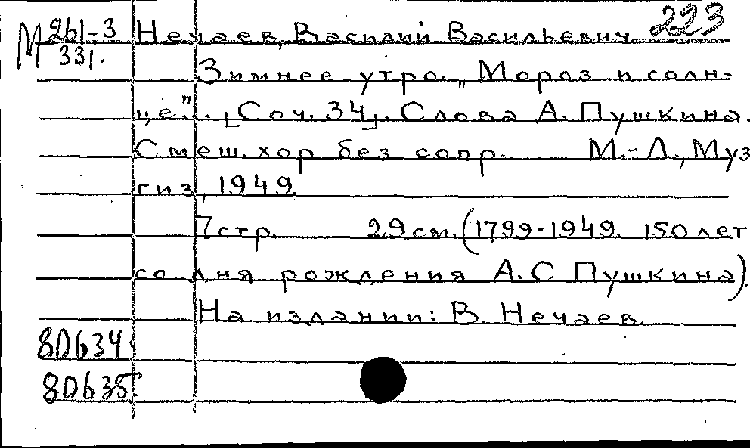 М 261-3 Нечаев, Василий Васильевич 223
331.
Зимнее утро. „Мороз и солн-
це". [Соч. 34]. Слова А. Пушкина.
Смеш. хор без сопр. М.-Л., Муз
гиз, 1949.
7 стр. 29 см. (1799-1949. 150 лет
со дня рождения А. С Пушкина).
На издании: В. Нечаев.
80634
80635